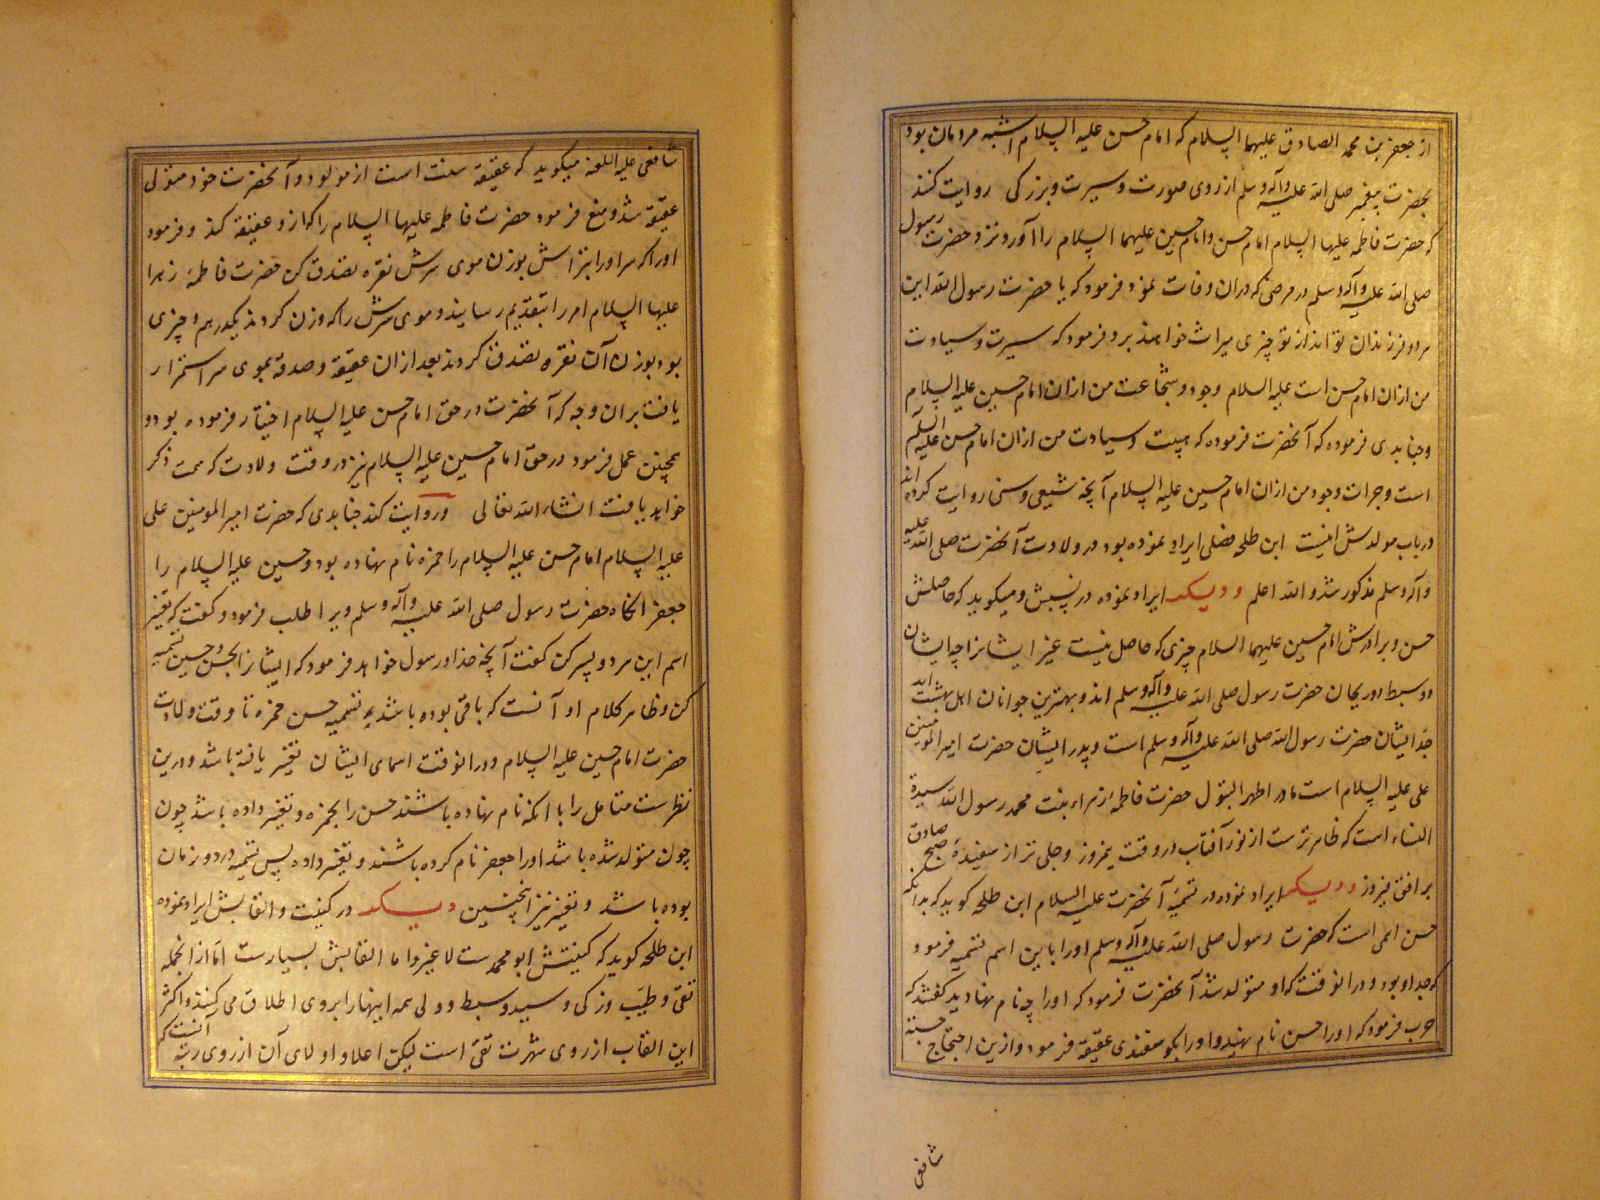 از جعفر بن محمد الصادق علیهما السلام که امام حسن علیه السلام اشبه مردمان بود
بحضرت پیغمبر صلی الله علیه وآله وسلم از روی صورت وسیرت وبزرکی روایت کنند
که حضرت فاطمه علیها السلام امام حسن وامام حسین علیهما السلام را آورد نزد حضرت رسول
صلی الله علیه وآله وسلم در مرضی که دران وفات نمود فرمود که یا حضرت رسول الله این
هر دو فرزندان تو اند از تو چیزی میراث خواهند برد فرمود که سیرت وسیادت
من ازان امام حسن است علیه السلام وجود وشجاعت من ازان امام حسین علیه السلام
وجنابدی فرموده که آنحضرت فرموده که هیبت وسیادت من ازان امام حسن علیه السلم
است وجرات وجود من ازان امام حسین علیه السلام آنچه شیعی وسنی روایت کرده اند
در باب مولدش اینست ابن طلحه فصلی ایراد نموده بود در ولادت آنحضرت صلی الله علیه
وآله وسلم مذکور شد والله اعلم ودیکر ایراد نموده در نسبش ومیکوید که حاصلش
حسن وبرادرش امام حسین علیهما السلام چیزی که حاصل نیست غیر ایشانرا چه ایشان
دو سبط ودو ریحان حضرت رسول صلی الله علیه وآله وسلم اند وبهترین جوانان اهل بهشت اند
جد ایشان حضرت رسول الله صلی الله علیه وآله وسلم است وپدر ایشان حضرت امیر المومنین
علی علیه السلام است مادر اطهر البتول حضرت فاطمه زهراء بنت محمد رسول الله سیدة
النساء است که ظاهرترست از نور آفتاب در وقت نیمروز وجلی تر از سفیدهٔ صبح صادق
بر افق فیروز ودیکر ایراد نموده در تسمیهٔ آنحضرت علیه السلام ابن طلحه کوید که بدانکه
حسن اسمی است که حضرت رسول صلی الله علیه وآله وسلم اورا باین اسم تسمیه فرمود
که جد او بود ودرانوقت که او متولد شد آنحضرت فرمود که اورا چه نام نهادید کفتند که
حرب فرمود که اورا حسن نام نهید واورا بکوسفندی عقیقه فرمود وازین احتجاج جسته
شافعی
شافعی علیه اللعنه میکوید که عقیقه سنت است از مولود وآنحضرت خود متولی
عقیقه شد ومنع فرمود حضرت فاطمه علیها السلام را که ازو عقیقه کند وفرمود
اورا که سر اورا بتراش بوزن موی سرش نقره تصدق کن حضرت فاطمهٔ زهرا
علیها السلام امر را بتقدیم رسانید وموی سرش را که وزن کردند یکدرهم وچیزی
بود بوزن آن نقره تصدق کردند بعد ازان عقیقه وصدقه بموی سر استمرار
یافت بران وجه که آنحضرت در حق امام حسن علیه السلام اختیار فرموده بود و
همچنین عمل فرمود در حق امام حسین علیه السلام نیز در وقت ولادت که سمت ذکر
خواهد یافت انشاء الله تعالی وروایت کند جنابدی که حضرت امیر المومنین علی
علیه السلام امام حسن علیه السلام را حمزه نام نهاده بود وحسین علیه السلام را
جعفر انکاه حضرت رسول صلی الله علیه وآله وسلم ویرا طلب فرمود وکفت که تغییر
اسم این هر دو پسر کن کفت آنچه خدا ورسول خواهد فرمود که ایشانرا بحسن وحسین تسمیه
کن وظاهر کلام او آنست که باقی بوده باشد تسمیه حسن حمزه تا وقت ولادت
حضرت امام حسین علیه السلام ودرانوقت اسمای ایشان تغییر یافته باشد ودرین
نظرست متامل را با انکه نام نهاده باشند حسن را بحمزه وتغییر داده باشد چون
چون متولد شده باشد اورا جعفر نام کرده باشند وتغییر داده پس تسمیه در دو زمان
بوده باشد وتغییر نیز اینچنین ودیکر در کنیت والقابش ایراد نموده
ابن طلحه کوید که کنیتش ابو محمدست لا غیر واما القابش بسیارست اما از انجمله
تقی وطیب وزکی وسید وسبط وولی همه اینهارا بروی اطلاق می کنند واکثر
این القاب از روی شهرت تقی است لیکن اعلا واولای آن از روی رتبه آنست که